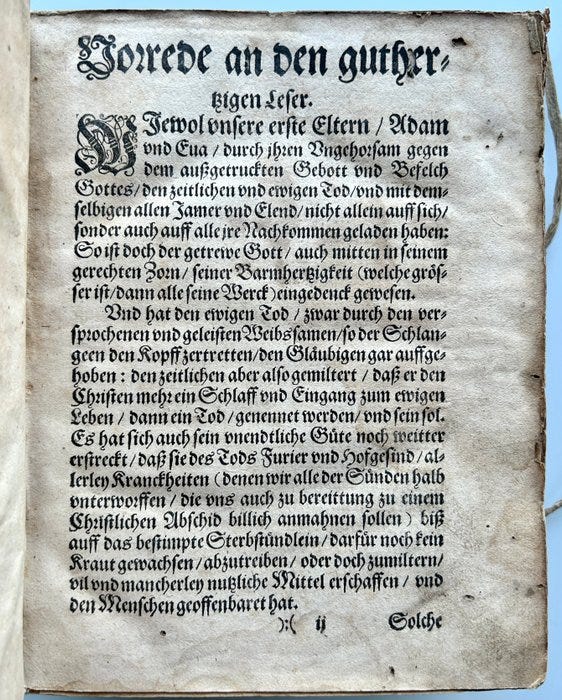 Vorrede an den guther-
tzigen Leser.
DJewol vnsere erste Eltern / Adam
vnd Eua / durch jhren Vngehorsam gegen
dem außgetruckten Gebott vnd Befelch
Gottes / den zeitlichen vnd ewigen Tod / vnd mit dem-
selbigen allen Jamer vnd Elend / nicht allein auff sich /
sonder auch auff alle jre Nachkommen geladen haben:
So ist doch der getrewe Gott / auch mitten in seinem
gerechten Zorn / seiner Barmhertzigkeit (welche grös-
ser ist / dann alle seine Werck) eingedenck gewesen.
Vnd hat den ewigen Tod / zwar durch den ver-
sprochenen vnd geleisten Weibssamen / so der Schlan-
geen den Kopff zertretten / den Gläubigen gar auffge-
hoben : den zeitlichen aber also gemiltert / daß er den
Christen mehr ein Schlaff vnd Eingang zum ewigen
Leben / dann ein Tod / genennet werden / vnd sein sol.
Es hat sich auch sein vnendtliche Güte noch weitter
erstreckt / daß sie des Tods Furier vnd Hofgesind / al-
lerley Kranckheiten (denen wir alle der Sünden halb
vnterworffen / die vns auch zu bereittung zu einem
Christlichen Abschid billich anmahnen sollen) biß
auff das bestimpte Sterbstündlein / darfür noch kein
Kraut gewachsen / abzutreiben / oder doch zumiltern /
vil vnd mancherley nutzliche Mittel erschaffen / vnd
den Menschen geoffenbaret hat.
):( ij Solche